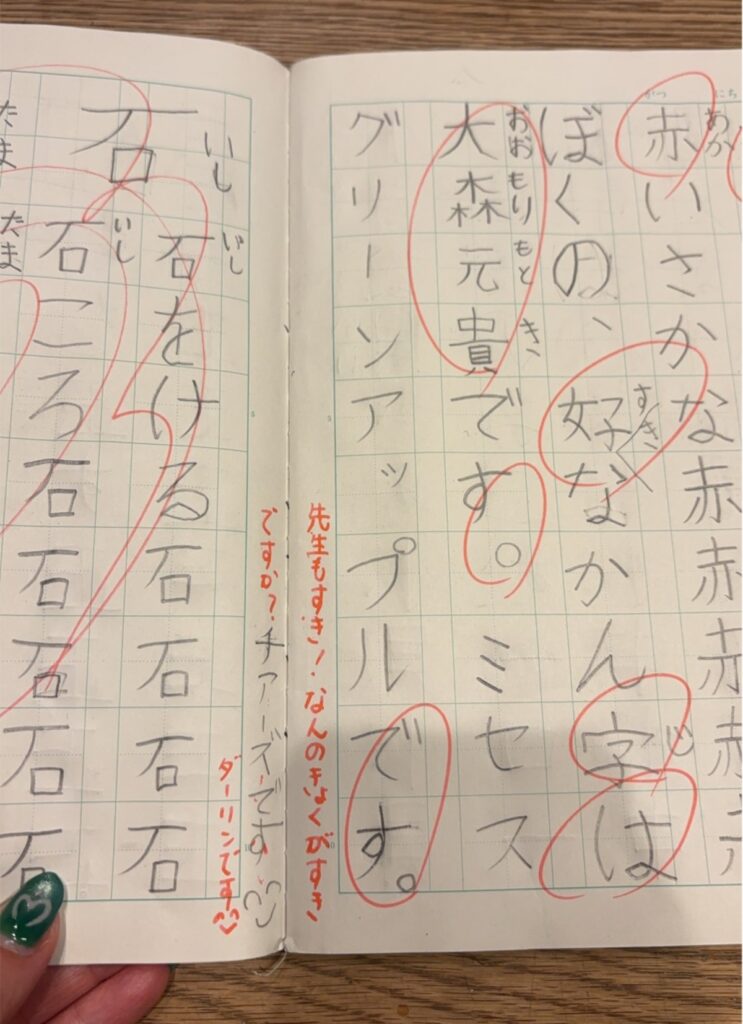 あか
赤いさかな赤赤赤
すき
じ
ぼくの、好なかん字は
おおもりもとき
大森元貴です。ミセス
グリーンアップルです。
先生もすき!なんのきょくがすき
ですか?チアーズです
ダーリンです
いし
石
いし
石をける石石石石
いし
石ころ石石石石石
たま
たま